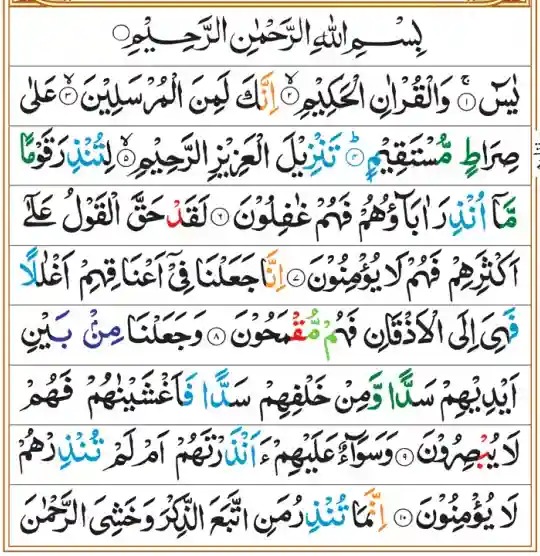 بِسْمِ اللهِ الرَّحْمٰنِ الرَّحِيْمِ
يٰسٓ ۝١ۚ وَالْقُرْاٰنِ الْحَكِيْمِ ۝٢ۙ اِنَّكَ لَمِنَ الْمُرْسَلِيْنَ ۝٣ۙ عَلٰى
صِرَاطٍ مُّسْتَقِيْمٍ ۝٤ؕ تَنْزِيْلَ الْعَزِيْزِ الرَّحِيْمِ ۝٥ۙ لِتُنْذِرَ قَوْمًا
مَّاۤ اُنْذِرَ اٰبَآؤُهُمْ فَهُمْ غٰفِلُوْنَ ۝٦ لَقَدْ حَقَّ الْقَوْلُ عَلٰۤى
اَكْثَرِهِمْ فَهُمْ لَا يُؤْمِنُوْنَ ۝٧ اِنَّا جَعَلْنَا فِيْۤ اَعْنَاقِهِمْ اَغْلٰلًا
فَهِىَ اِلَى الْاَذْقَانِ فَهُمْ مُّقْمَحُوْنَ ۝٨ وَجَعَلْنَا مِنْۢ بَيْنِ
اَيْدِيْهِمْ سَدًّا وَّمِنْ خَلْفِهِمْ سَدًّا فَاَغْشَيْنٰهُمْ فَهُمْ
لَا يُبْصِرُوْنَ ۝٩ وَسَوَآءٌ عَلَيْهِمْ ءَاَنْذَرْتَهُمْ اَمْ لَمْ تُنْذِرْهُمْ
لَا يُؤْمِنُوْنَ ۝١٠ اِنَّمَا تُنْذِرُ مَنِ اتَّبَعَ الذِّكْرَ وَخَشِىَ الرَّحْمٰنَ